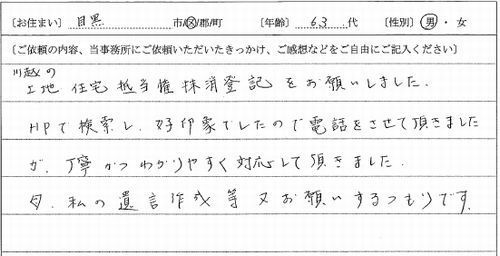 ［お住まい］ 目黒 市/区/郡/町 ［年齢］ 63 代 ［性別］ 男・女
［ご依頼の内容、当事務所にご依頼いただいたきっかけ、ご感想などをご自由にご記入ください］
川越の
土地 住宅 抵当権 抹消登記 をお願いしました.
HPで検索し、好印象でしたので電話をさせて頂きました
が、丁寧かつわかりやすく対応して頂きました.
母、私の遺言作成等又お願いするつもりです.